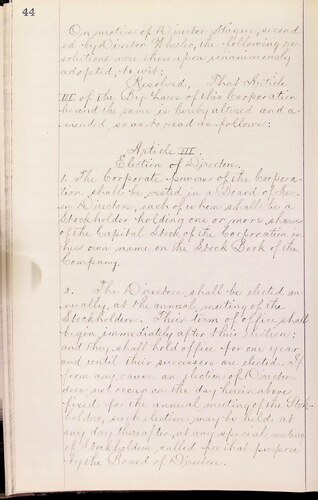 44
On motion of Director Stagne, second
ed by Director Wheeler, the following re
solutions were thereupon unanimously
adopted, to wit:
Resolved, That Article
III of the By-laws of this Corporation
be and the same is hereby altered and a-
mended, so as to read as follows:
Article III.
Election of Directors.
1. The Corporate powers of the Corpora
tion shall be vested in a Board of Sev-
en Directors, each of whom shall be a
Stockholder holding one or more shares
of the Capital Stock of the Corporation in
his own name on the Stock Book of the
Company.
2. The Directors shall be elected an-
nually, at the annual meeting of the
Stockholders. Their term of office shall
begin immediately after their election;
and they shall hold office for one year
and until their successors are elected. If
from any cause an election of Directors
does not occur on the day herein above
fixed for the annual meeting of the Stock-
holders, such election may be held at
any day thereafter, at any special meeting
of Stockholders, called for that purpose
by the Board of Directors.